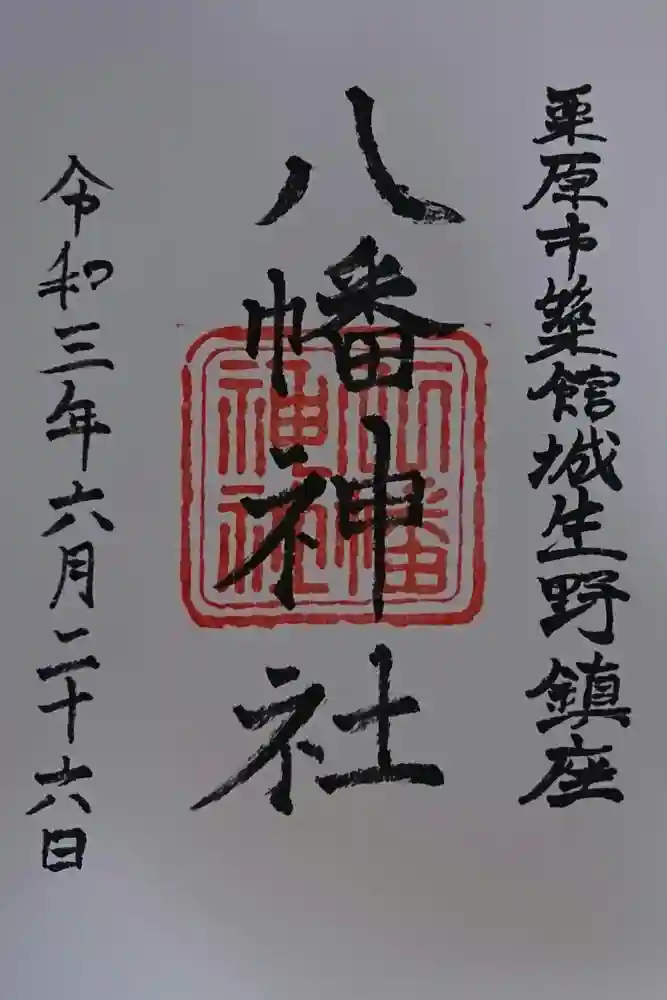 栗原市築館城生野鎮座
八幡神社
八幡
神社
令和三年六月二十六日